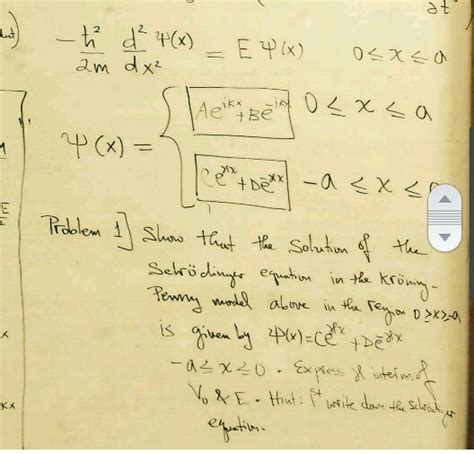 ∂t
-ħ²/2m d²/dx² Ψ(x) = E Ψ(x) 0 ≤ x ≤ a
Ψ(x) = { Ae^{ikx} + Be^{-ikx} 0 ≤ x ≤ a
Ce^{γx} + De^{-γx} -a ≤ x ≤
Problem 1] Show that the Solution of the
Schrödinger equation in the Kröning-
Penny model above in the region 0≥x≥-a
is given by Ψ(x)=Ce^{γx} + De^{-γx}
-a ≤ x ≤ 0 . Express γ in terms of
V₀ & E . Hint: 1st write down the Schrödinger
equation.